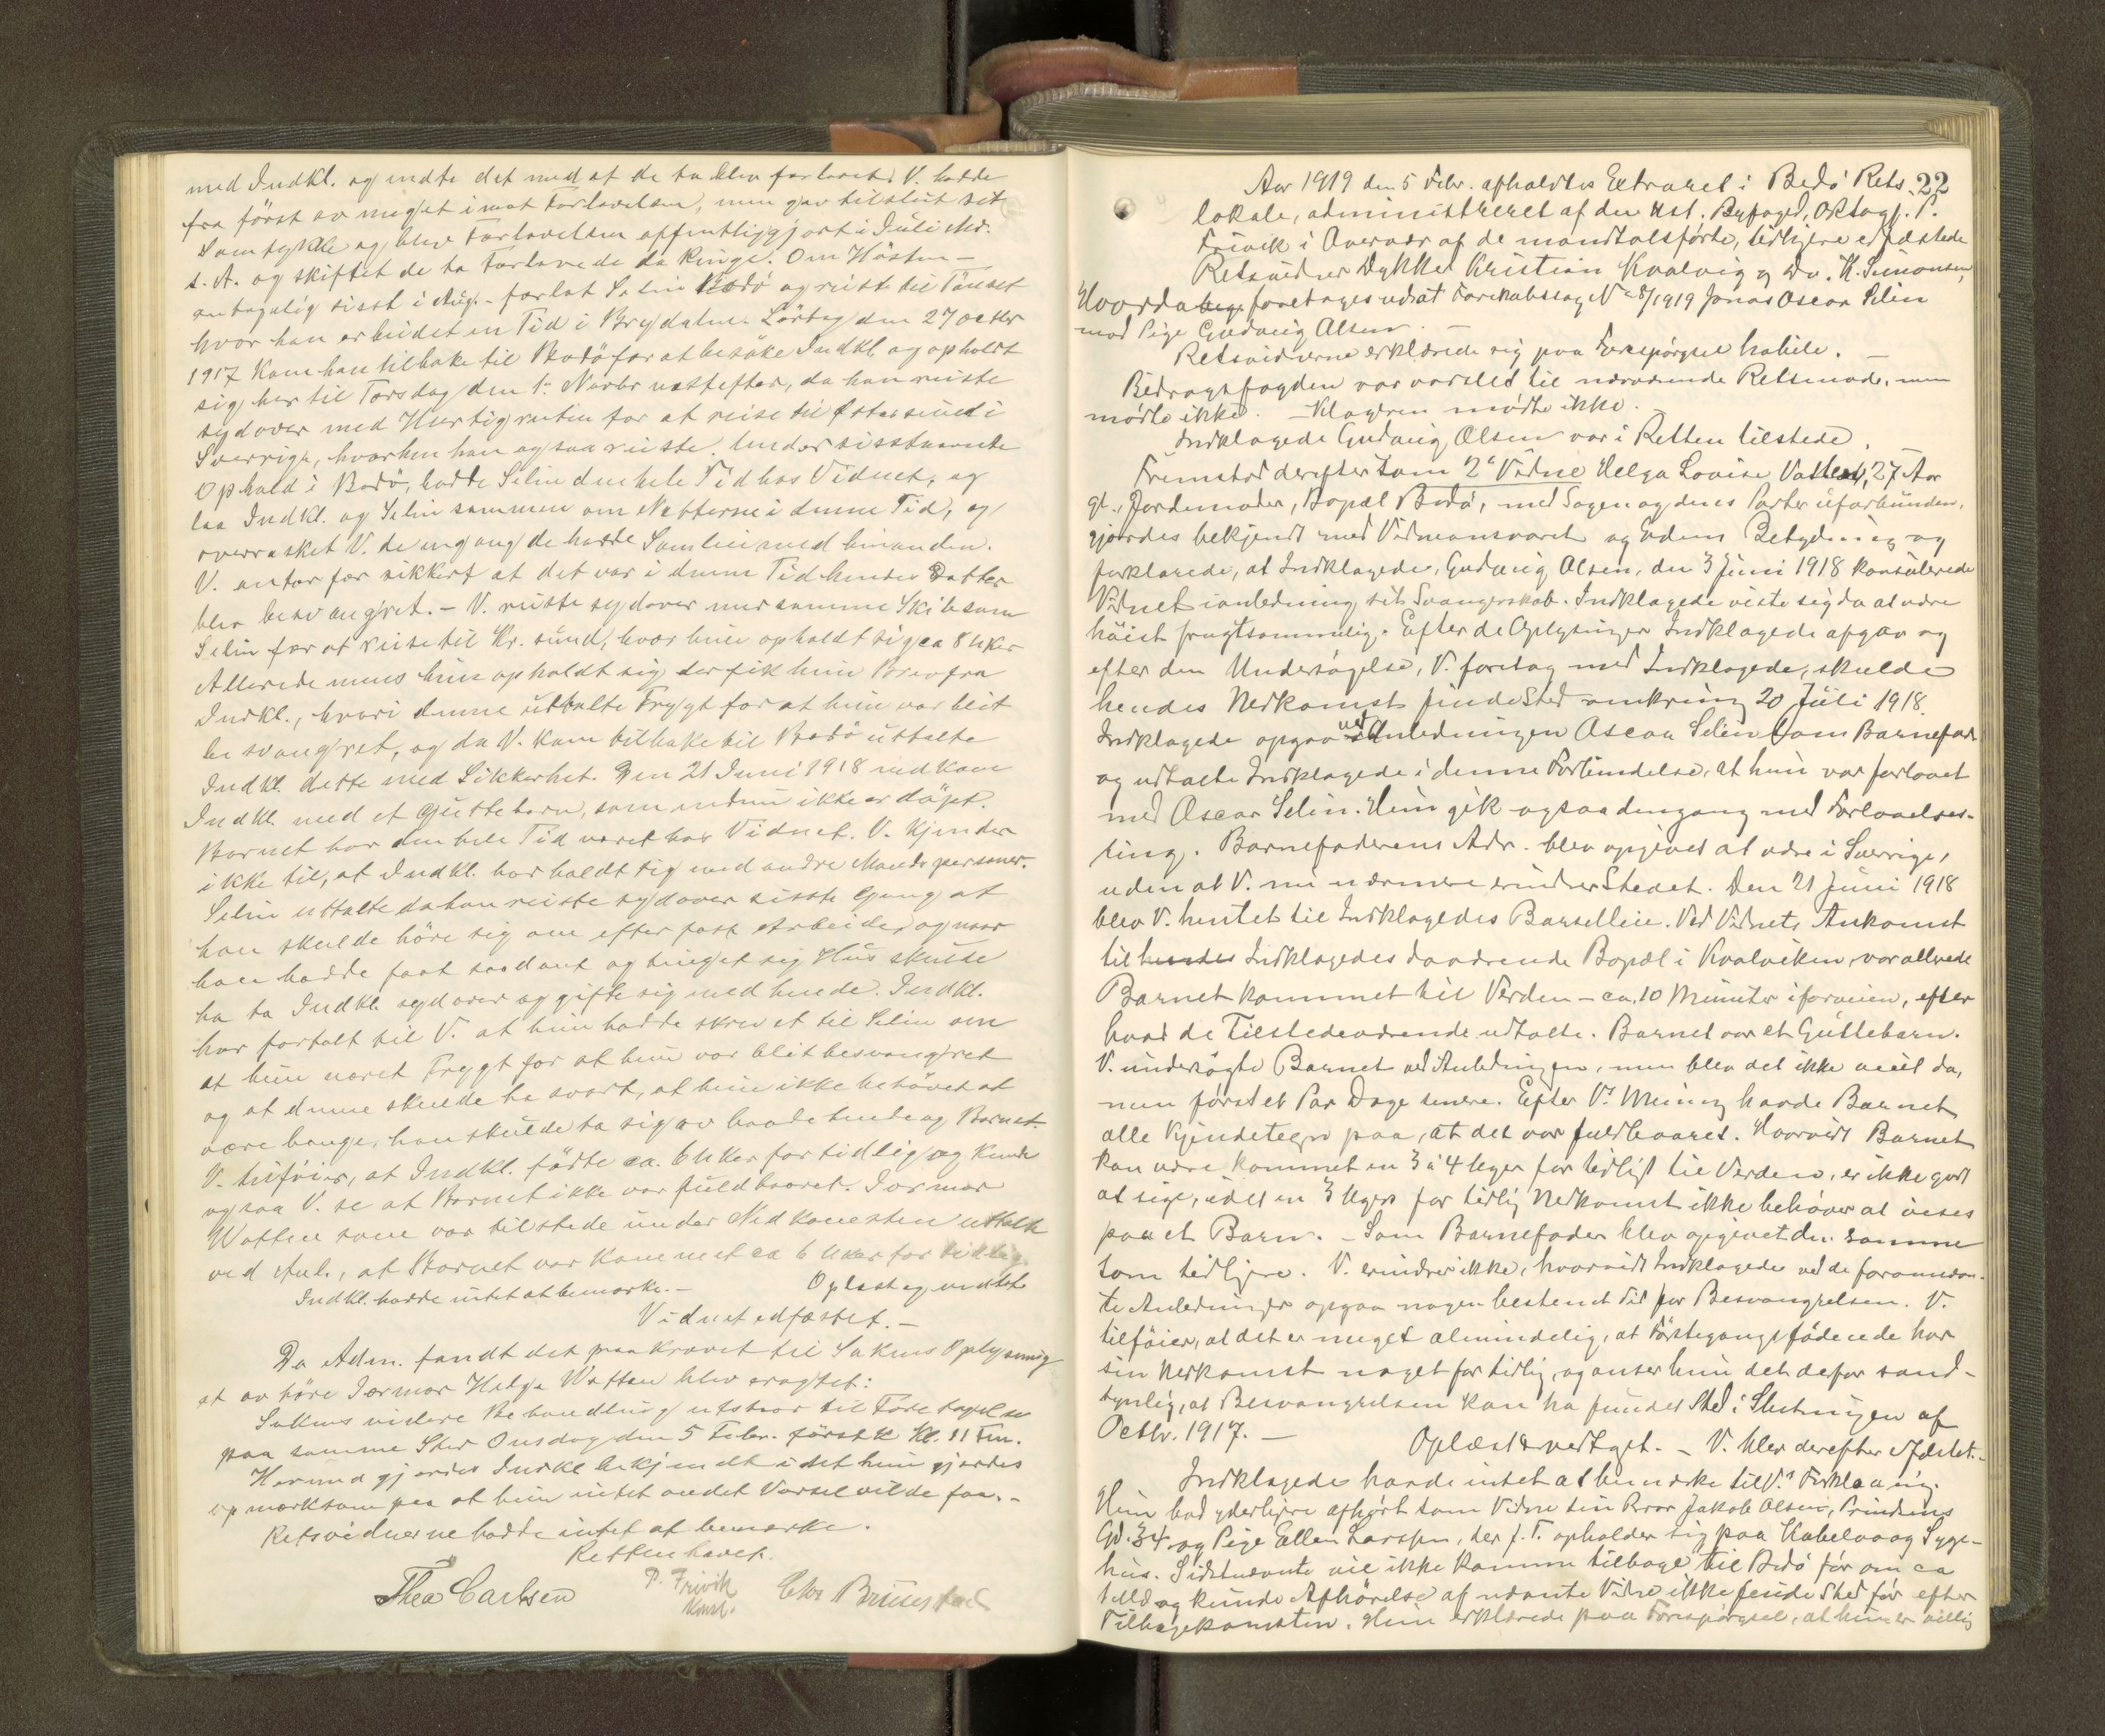 med Indkl. og endte det med at de to blev forlovet. V. hadde
fra først av meget imot Forlovelsen, men gav tilslut sit
Samtykke og blev Forlovelsen offentliggjort i Juli Md.
s. A. og skiftet de to Forlovede da Ringe. Om Høsten –
antagelig sisst i Aug. – forlot Selin Bodö og reiste til Tönset
hvor han arbeidet en Tid i Brydalen. Lördag den 27 Octbr
1917 kom han tilbake til Bodö for at besöke Indkl. og opholdt
sig her til Torsdag den 1. Novbr næstefter, da han reiste
sydover med Hurtigrutin for at reise til Østersund i
Sverrige, hvorhen han ogsaa reiste. Under sisstnævnte
Ophold i Bodö, bodde Selin den hele Tid hos Vidnet, og
laa Indkl. og Selin sammen om Nætterne i denne Tid, og
overrasket V. de engang de hadde Samleie med hinanden.
V. antar for sikkert at det var i denne Tid hendes Datter
blev besvangret. – V. reiste sydover med samme Skib som
Selin for at reise til Kr. sund, hvor hun opholdt sig ca 8 Uker
Allerede mens hun opholdt sig der fik hun Brev fra
Indkl., hvori denne uttalte Frygt for at hun var blit
besvangret, og da V. kom tilbake til Bodö uttalte
Indkl. dette med Sikkerhet. Den 21 Juni 1918 nedkom
Indkl. med et Guttebarn, som endnu ikke er döpt.
Barnet har den hele Tid været hos Vidnet. V. kjender
ikke til, at Indkl. har holdt sig med andre Mandspersoner.
Selin uttalte da han reiste sydover sisste Gang at
han skulde höre sig om efter fast Arbeide, og naar
han hadde faat saadant og tinget sig Hus skulde
han ta Indkl. sydover og gifte sig med hende. Indkl.
har fortalt til V. at hun hadde skrevet til Selin om
at hun næret Frygt for at hun var blit besvangret
og at denne skulde ha svart, at hun ikke behövet at
være bange, han skulde ta sig av baade hende og Barnet.
V. tilföier, at Indkl. födte ca. 6 Uker for tidlig og kunde
ogsaa V. se at Barnet ikke var fuldbaaret. Jormor
Watten som var tilstede under Nedkomsten uttalte
ved Anl., at Barnet var kommet ca 6 Uker for tidlig.
Indkl. hadde intet at bemærke. – Oplæst og vedtat
Vidnet edfæstet. –
Da Adm. fandt det paakrævet til Sakens Oplysning
at av höre Jormor Helga Watten blev eragtet:
Sakens videre Behandling utstaar til Foretagelse
paa samme Sted Onsdag den 5 Febr. förstk Kl. 11 Fm.
Hermed gjordes Indkl bekjendt idet hun gjordes
opmerksom paa at hun intet andet Varsel vilde faa. –
Retsvidnerne hadde intet at bemærke.
Retten hævet.
Theo Carlsen P. Frivik Kunst. Chr Brinchstad
22
Aar 1919 den 5 Febr. afholdtes Extraret i Bodö Rets-
lokale, administreret af den Kst. Byfoged, O.R.sagf. P.
Frivik i Overvær af de mandtalsførte, tidligere edfæstede
Retsvidner Dykker Kristian Kvalvig og Do. K. Simonsen,
Hvorda foretages udsat Farskabssag No 8/1919 Jonas Oscar Selin
mod Pige Gudvig Olsen. –
Retsvidnerne erklærede sig paa Forespørgsel habile. –
Bidragsfogden var varslet til nærværende Retsmøde, men
mødte ikke. – Klageren mødte ikke.
Indklagede Gudvig Olsen var i Retten tilstede.
Fremstod derefter som 2' Vidne Helga Lovise Vatten, 27 Aar
gl., Jordemoder, Bopæl Bodö, med Sagen og dens Parter uforbunden,
gjordes bekjendt med Vidneansvaret og Edens Betydning og
forklarede, at Indklagede, Gudvig Olsen, den 3 Juni 1918 konsulerede
Vidnet i anledning sit Svangerskab. Indklagede viste sig da at være
höist frugtsommelig. Efter de Oplysninger Indklagede afgav og
efter den Undersøgelse, V. foretog med Indklagede, skulde
hendes Nedkomst finde Sted omkring 20 Juli 1918.
Indklagede opgav ved Anledningen Oscar Selin som Barnefar
og udtalte Indklagede i denne Forbindelse, at hun var forlovet
med Oscar Selin. Hun gik ogsaa dengang med Forlovelses-
ring. Barnefaderens Adr. blev opgivet at være i Sverrige,
uden at V. nu nærmere erindrer Stedet. Den 21 Juni 1918
blev V. hentet til Indklagedes Barselleie. Ved Vidnets Ankomst
til hendes Indklagedes daværende Bopæl i Kvalviken var allerede
Barnet kommet til Verden – ca. 10 Minuter iforveien, efter
hvad de Tilstedeværende udtalte. Barnet var et Guttebarn.
V. undersøgte Barnet ved Anledningen, men blev det ikke veiet da,
men først et Par Dage senere. Efter V's Mening havde Barnet
alle Kjendetegn paa, at det var fuldbaaret. Hvorvidt Barnet
kan være kommet en 3 à 4 Uger for tidligt til Verden, er ikke godt
at sige, idet en 3 Ugers for tidlig Nedkomst ikke behøver at vises
paa et Barn. – Som Barnefader blev opgivet den samme
som tidligere. V. erindrer ikke, hvorvidt Indklagede ved de forommeld-
te Anledninger opgav nogen bestemt Tid for Besvangrelsen. V.
tilföier, at det er meget almindelig, at Förstegangsfødende har
sin Nedkomst noget for tidlig, og anser hun det derfor sand-
synlig, at Besvangrelsen kan ha fundet Sted i Slutningen af
Octbr. 1917. – Oplæst & vedtaget. – V. blev derefter edfæstet. –
Indklagede havde intet at bemærke til V's Forklaring.
Hun bad yderligere afhørt som Vidne sin Bror Jakob Olsen, Prindsens
Gd. 34 og Pige Ellen Larssen, der f. T. opholder sig paa Kabelvaag Syge-
hus. Sidstnævnte vil ikke komme tilbage til Bodö før om ca
1 Md og kunde Afhørelse af nævnte Vidne ikke finde Sted før efter
Tilbagekomsten. Hun erklærede paa Forespørgsel, at hun er villig